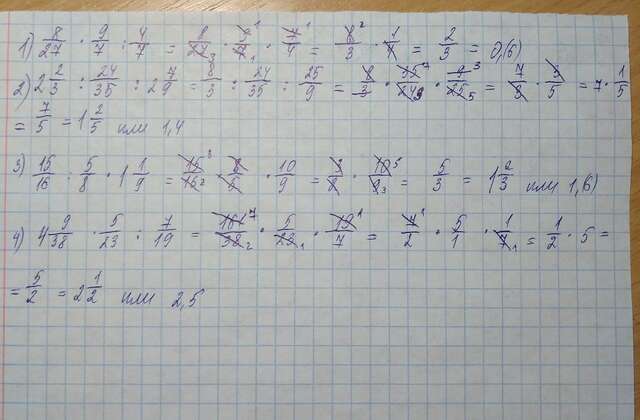 1) 8/27 · 9/7 : 4/7 = 8/27 3 · 9 1/7 1 · 7 1/4 = 8 2/3 · 1/4 = 2/3 = 0,(6)
2) 2 2/3 : 24/35 : 2 7/9 = 8/3 : 24/35 : 25/9 = 8/3 · 35 7/24 3 · 9 3/25 5 = 7/3 · 3/5 = 7 · 1/5
= 7/5 = 1 2/5 или 1,4
3) 15/16 : 5/8 · 1 1/9 = 15 3/16 2 · 8/5 · 10/9 = 3/2 · 10 5/9 3 = 5/3 = 1 2/3 или 1,(6)
4) 4 9/38 · 5/23 : 7/19 = 161 7/38 2 · 5/23 1 · 19 1/7 = 7 1/2 · 5/1 · 1/7 1 = 1/2 · 5 =
= 5/2 = 2 1/2 или 2,5